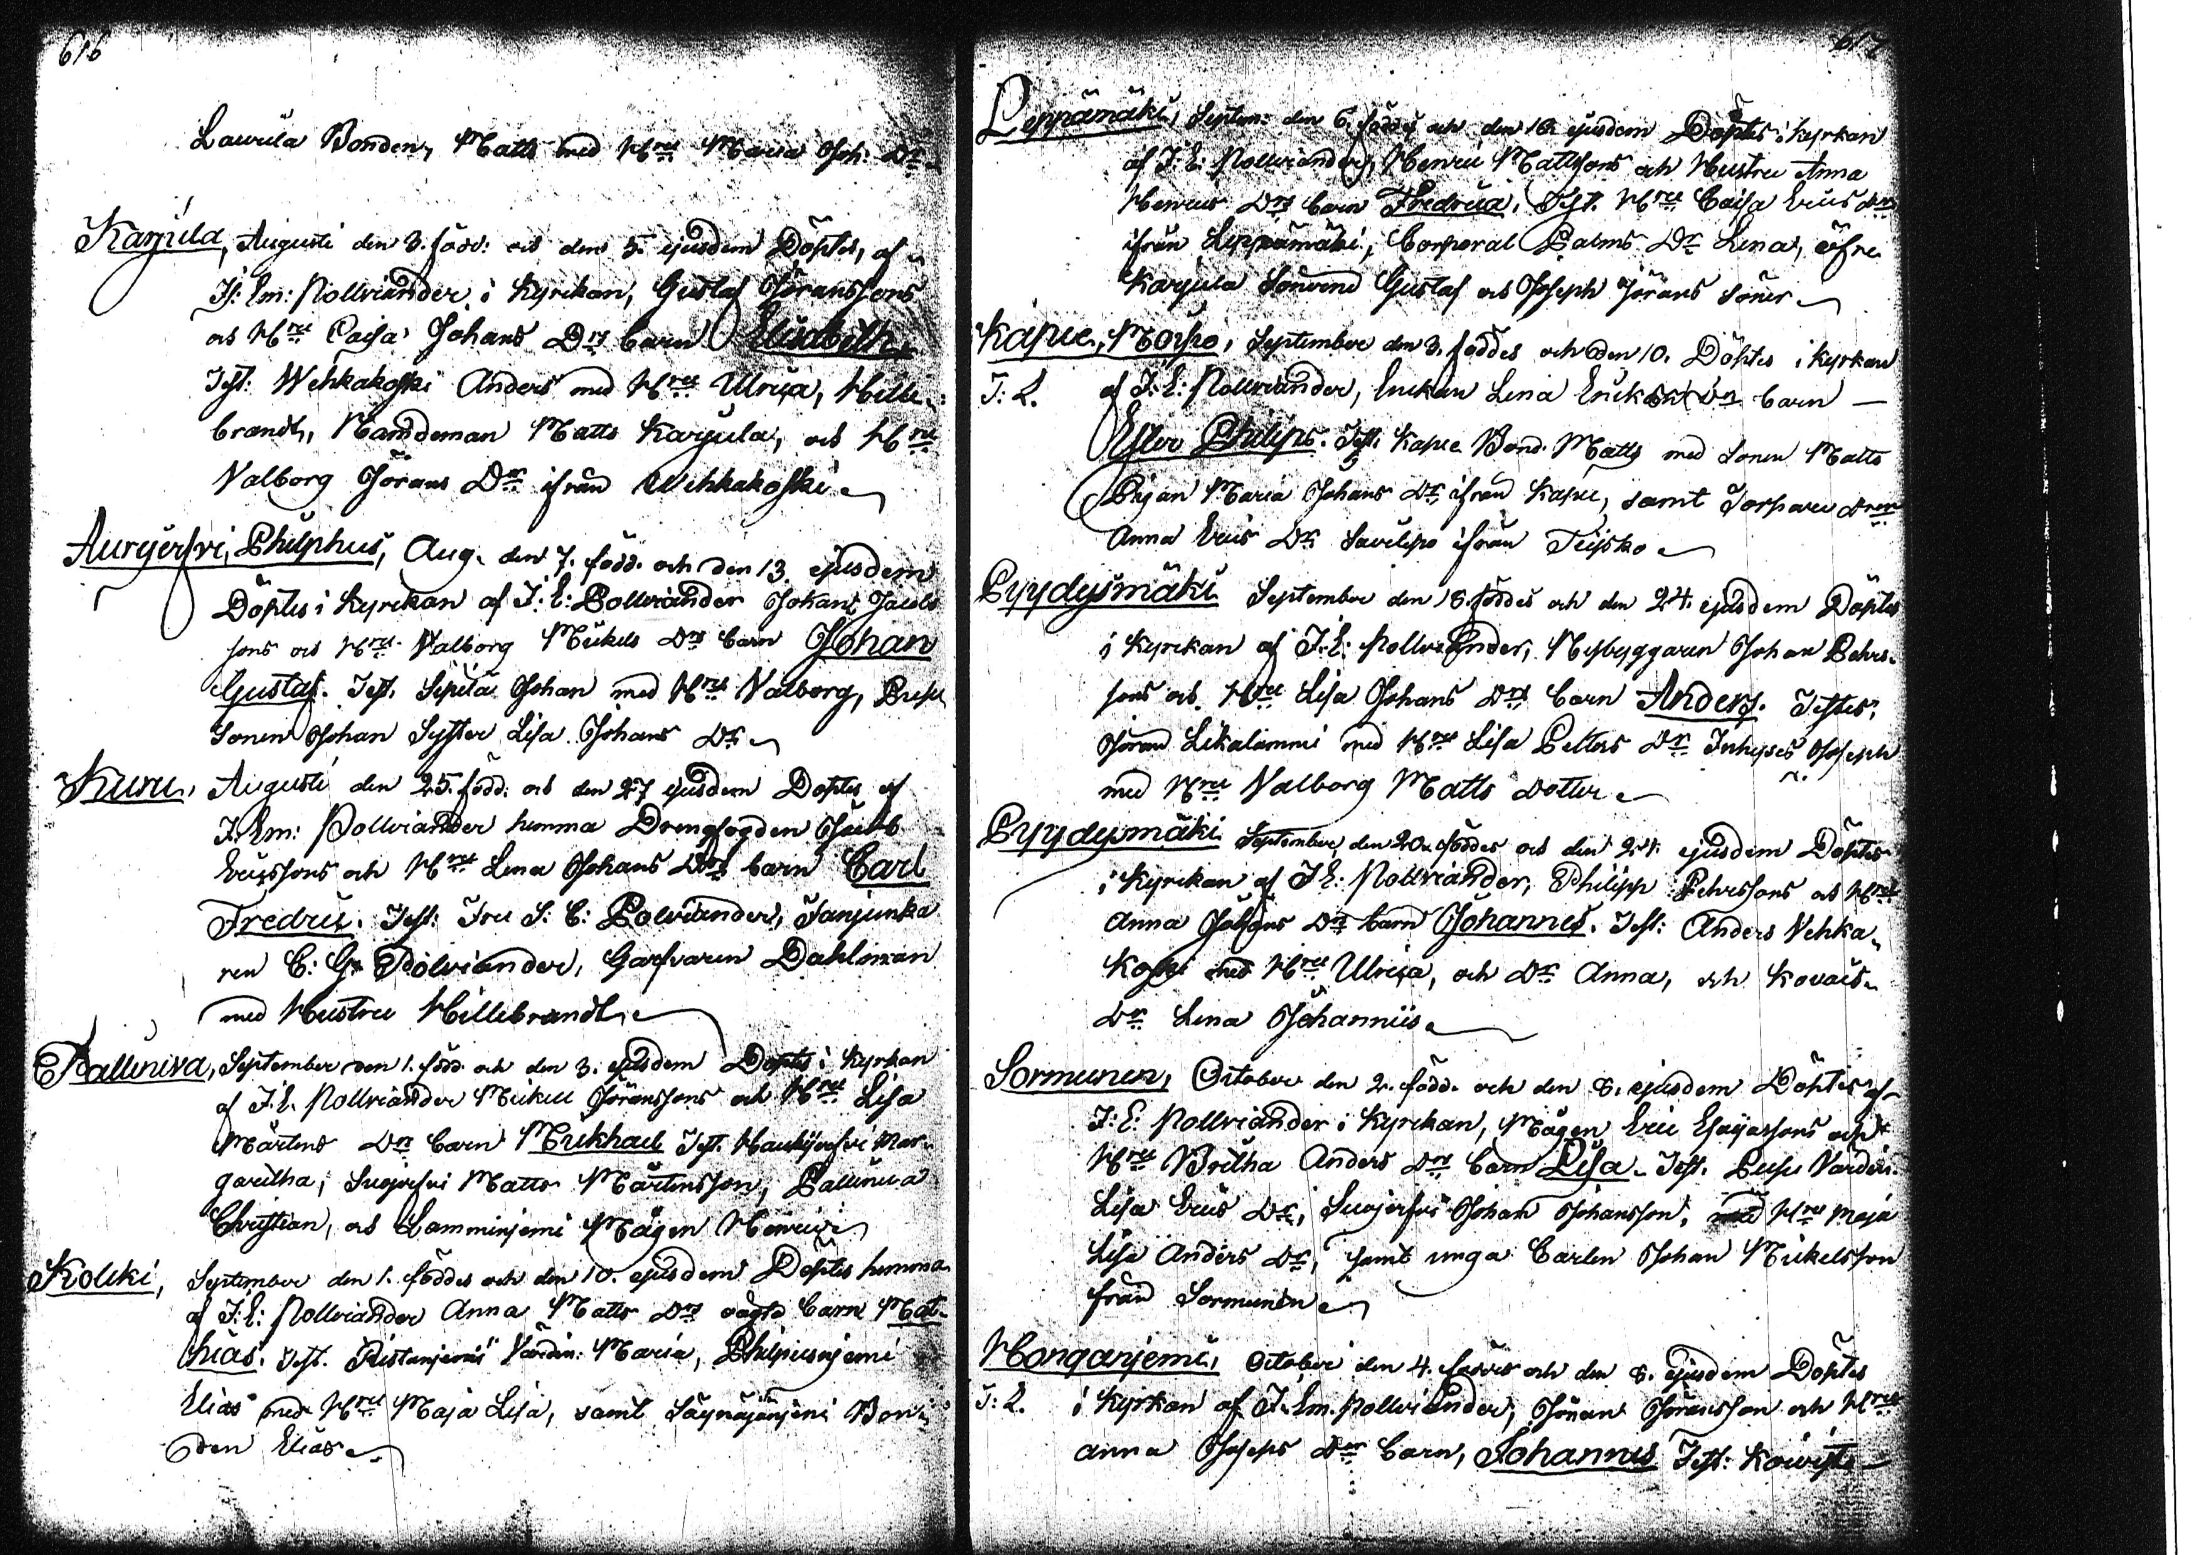 616
Laurila Bonden, Matts med H:ru Maria Joh: D:r
Karjula, Augusti den 3. född: och den 5. ejusdem Döptes, af
J: Em: Pollviander i Kyrckan, Gustaf Jöranssons
och H:ru Caisa Johans D:rs barn Elisabeth
Test: Wehkakoski Anders med H:ru Ulrica, Hille-
brandt, Nämdeman Matts Karjula, och H:ru
Valborg Jörans D:r ifrån Wehkakoski
Aurejerfvi, Philphus, Aug. den 7. född. och den 13. ejusdem
Döptes i Kyrckan af J: E: Pollviander Johans Jacobs
sons och H:ru Valborg Mickels D:rs barn Johan
Gustaf. Test. Sipilä Johan med H:ru Valborg,
Sonen Johan Syster Lisa Johans D:r
Kuru, Augusti den 25. född. och den 27 ejusdem Döptes af
J: Em: Pollviander hemma Drengfogden Jacob
Ericssons och H:ru Lena Johans D:rs barn Carl
Fredric. Test: Fru S: C: Polviander, Fanjunka
ren C: G: Pólviander, Garfvaren Dahlman
med Hustru Hillebrandt
Palliniva, September den 1. född. och den 3. ejusdem Döptes i Kyrkan
af J: E. Pollviander Mickel Jöranssons och H:ru Lisa
Mårtens D:rs barn Mickhael Test. Haukijerfvi Mar-
garetha, Suojerfvi Matts Mårtensson, Palliniva
Christian, och Lamminjemi Mågen Henric
Kolcki, September den 1. föddes och den 10. ejusdem Döptes hemma
af J: E: Pollviander Anna Matts D:rs oägta barn Mat-
thias. Test. Ristanjemi Värdin: Maria, Philpusenjemi
Elias med H:ru Maja Lisa, samt Säynäjänjemi Bon-
den Elias
617
Leppämäki, Septem: den 6. föddes och den 10. ejusdem Döptes i Kyrkan
af J: E: Pollviander, Henric Mattssons och Hustru Anna
Henrics D:rs barn Fredrica, Test. H:ru Caisa Erics D:r
ifrån Leppämäki, Corporal Palms D:r Lena, öfre
Karjula Sonens Gustaf och Joseph Jörans Söner
Kapee, Mörsö, September den 3. föddes och den 10. Döptes i Kyrkan
T: L. af J: E: Pollviander, Enckan Lena Ericks D:rs barn
Ester Philips. Test: Kapee Bond. Matts med Sonen Matts
Pigan Maria Johans D:r ifrån Kapee, samt Torpare D:ren
Anna Erics D:r Savilepo ifrån Teisko
Pyydysmäki September den 18. föddes och den 24. ejusdem Döptes
i Kyrckan af J: E: Pollviander, Nybyggaren Johan Pehrs-
sons och H:ru Lisa Johans D:rs barn Anders. Testes,
Jöran Likalammi med H:ru Lisa Petters D:r Inhyses Joseph
med H:ru Valborg Matts dotter
Pyydysmäki September den 20. föddes och den 24. ejusdem Döptes
i Kyrckan af J: E: Pollviander, Philipp Pehrssons och H:ru
Anna Johans D:rs barn Johannes. Test: Anders Vehka-
koski med H:ru Ulrica, och D:r Anna, och Kovais
D:r Lena Johanniis
Sormunen, October den 2. född. och den 8. ejusdem Döptes af
J: E: Pollviander i Kyrckan, Mågen Eric Esaiassons och
H:ru Britha Anders D:rs barn Lisa. Test. Värdin
Lisa Erics D:r, Suojerfvi Johan Johansson, med H:ru Maja
Lisa Anders D:r, samt unga Carlen Johan Mickelsson
från Sormunen
Honganjemi, October den 4. föddes och den 8. ejusdem Döptes
T: L. i Kyrkan af J: Em. Pollviander, Jöran Jöransson och H:ru
Anna Josephs D:rs barn, Johannes Test: Koivisto